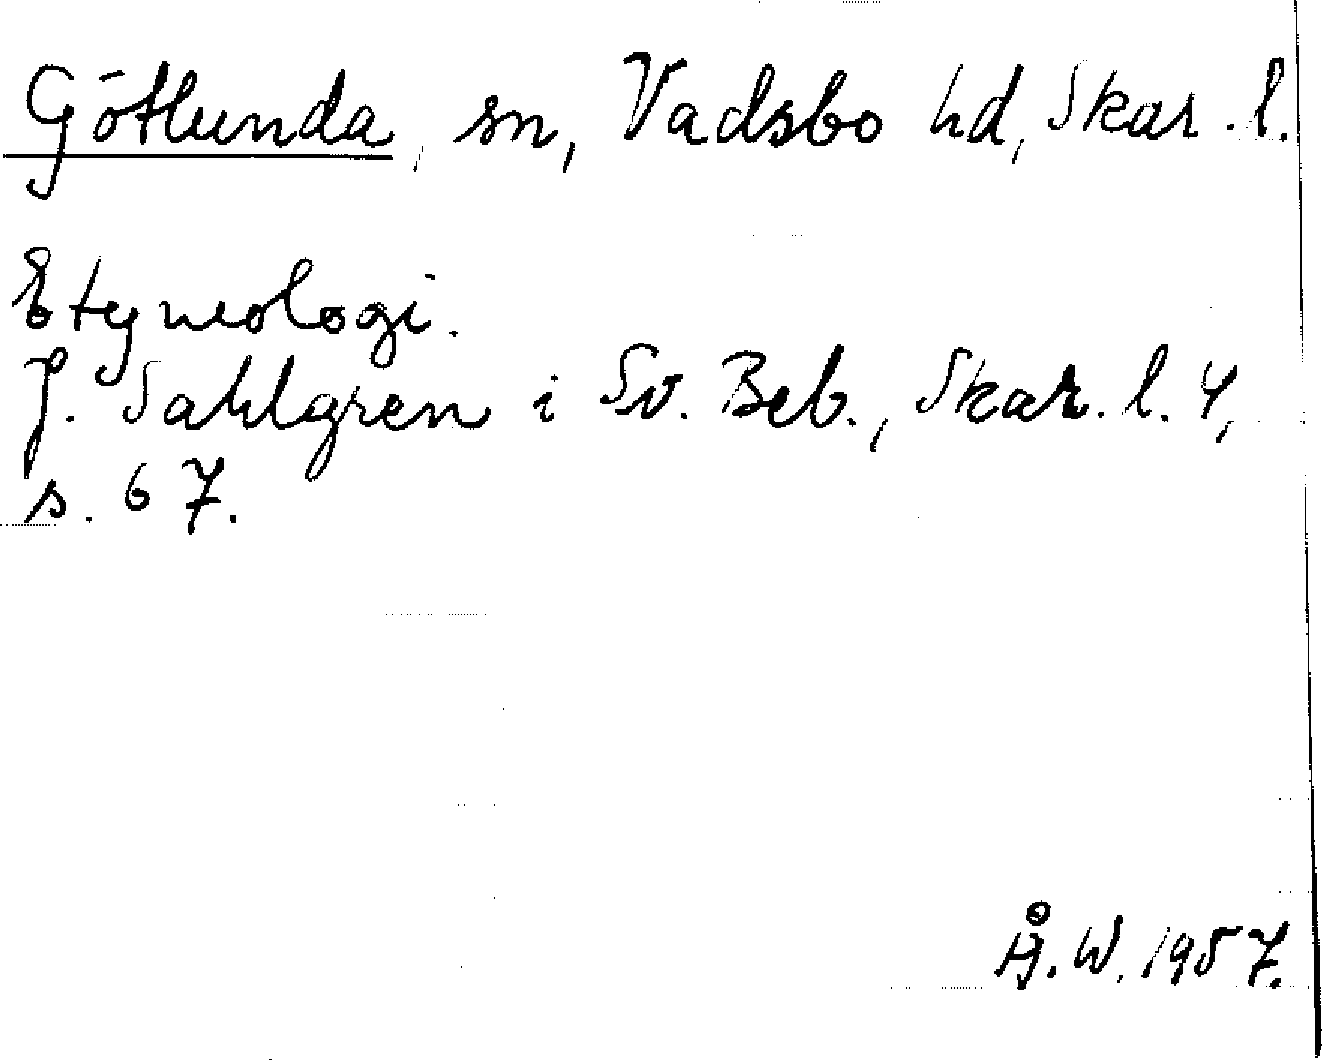 Götlunda, sn, Vadsbo hd, Skar. l.
Etymologi.
J. Sahlgren i Sv. Beb., Skar. l. 4,
s. 67.
Å. W. 1957.